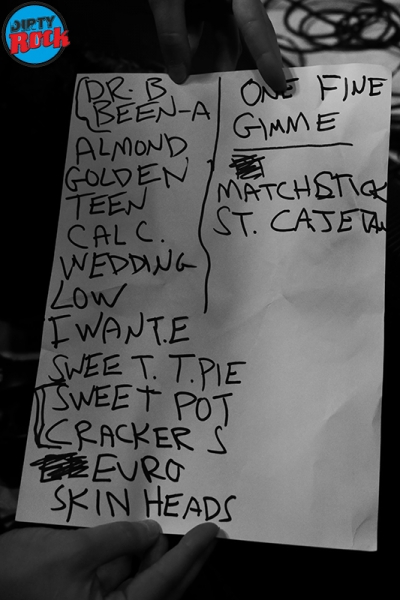 DIRTY
Rock
DR. B
BEEN-A
ALMOND
GOLDEN
TEEN
CALC.
WEDDING
LOW
I WANT.E
SWEET. T.PIE
SWEET POT
CRACKERS
EURO
SKINHEADS
ONE FINE
GIMME
MATCHSTICK
ST. CAJETAN